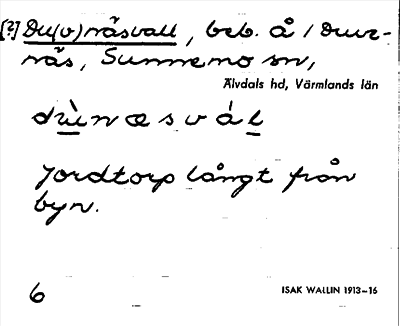 [?] Du(v)näsvall, beb. å /Duv-
näs, Sunnemo sn,
Älvdals hd, Värmlands län
dùnæsvál
Jordtorp långt från
byn.
6
ISAK WALLIN 1913–16